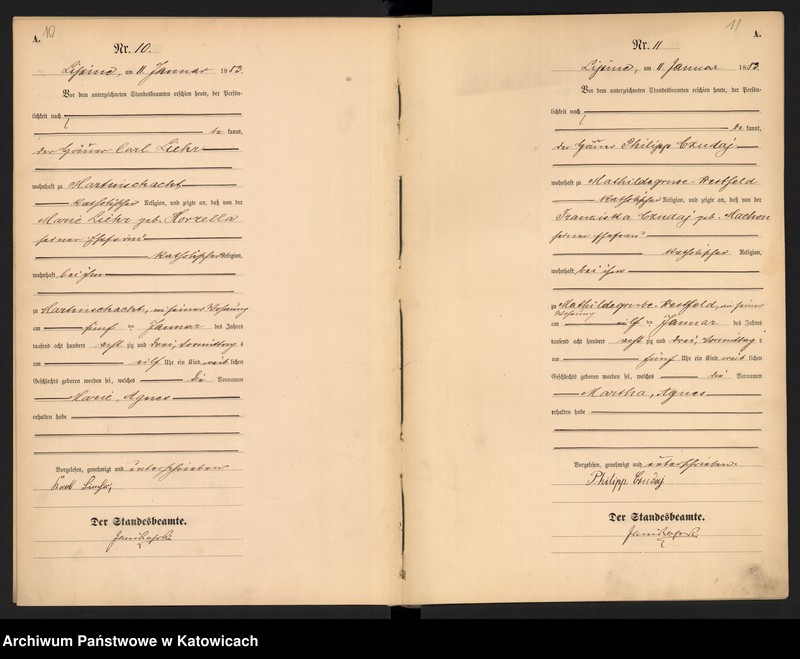 A. 10
Nr. 10.
Lipine, am 11 Januar 1883.
Vor dem unterzeichneten Standesbeamten erschien heute, der Persön-
lichkeit nach
be kannt,
der Häuer Carl Liehr
wohnhaft zu Martinschacht
katholischer Religion, und zeigte an, daß von der
Marie Liehr geb. Horzella
seiner Ehefrau
katholischer Religion,
wohnhaft bei ihm
zu Martinschacht, in seiner Wohnung
am fünf ten Januar des Jahres
tausend acht hundert acht zig und drei, Vormittag s
um eilf Uhr ein Kind weib lichen
Geschlechts geboren worden sei, welches die Vornamen
Marie, Agnes
erhalten habe
Vorgelesen, genehmigt und unterschrieben
Der Standesbeamte.
11 A.
Nr. 11
Lipine, am 11 Januar 1883.
Vor dem unterzeichneten Standesbeamten erschien heute, der Persön-
lichkeit nach
be kannt,
der Häuer Philipp Czudaj
wohnhaft zu Mathildegrube-Westfeld
katholischer Religion, und zeigte an, daß von der
Franziska Czudaj geb. Machon
seiner Ehefrau
katholischer Religion,
wohnhaft bei ihm
zu Mathildegrube-Westfeld, in seiner
Wohnung
am eilf ten Januar des Jahres
tausend acht hundert acht zig und drei, Vormittag s
um fünf Uhr ein Kind weib lichen
Geschlechts geboren worden sei, welches die Vornamen
Martha, Agnes
erhalten habe
Vorgelesen, genehmigt und unterschrieben.
Philipp Czudaj
Der Standesbeamte.
Archiwum Państwowe w Katowicach